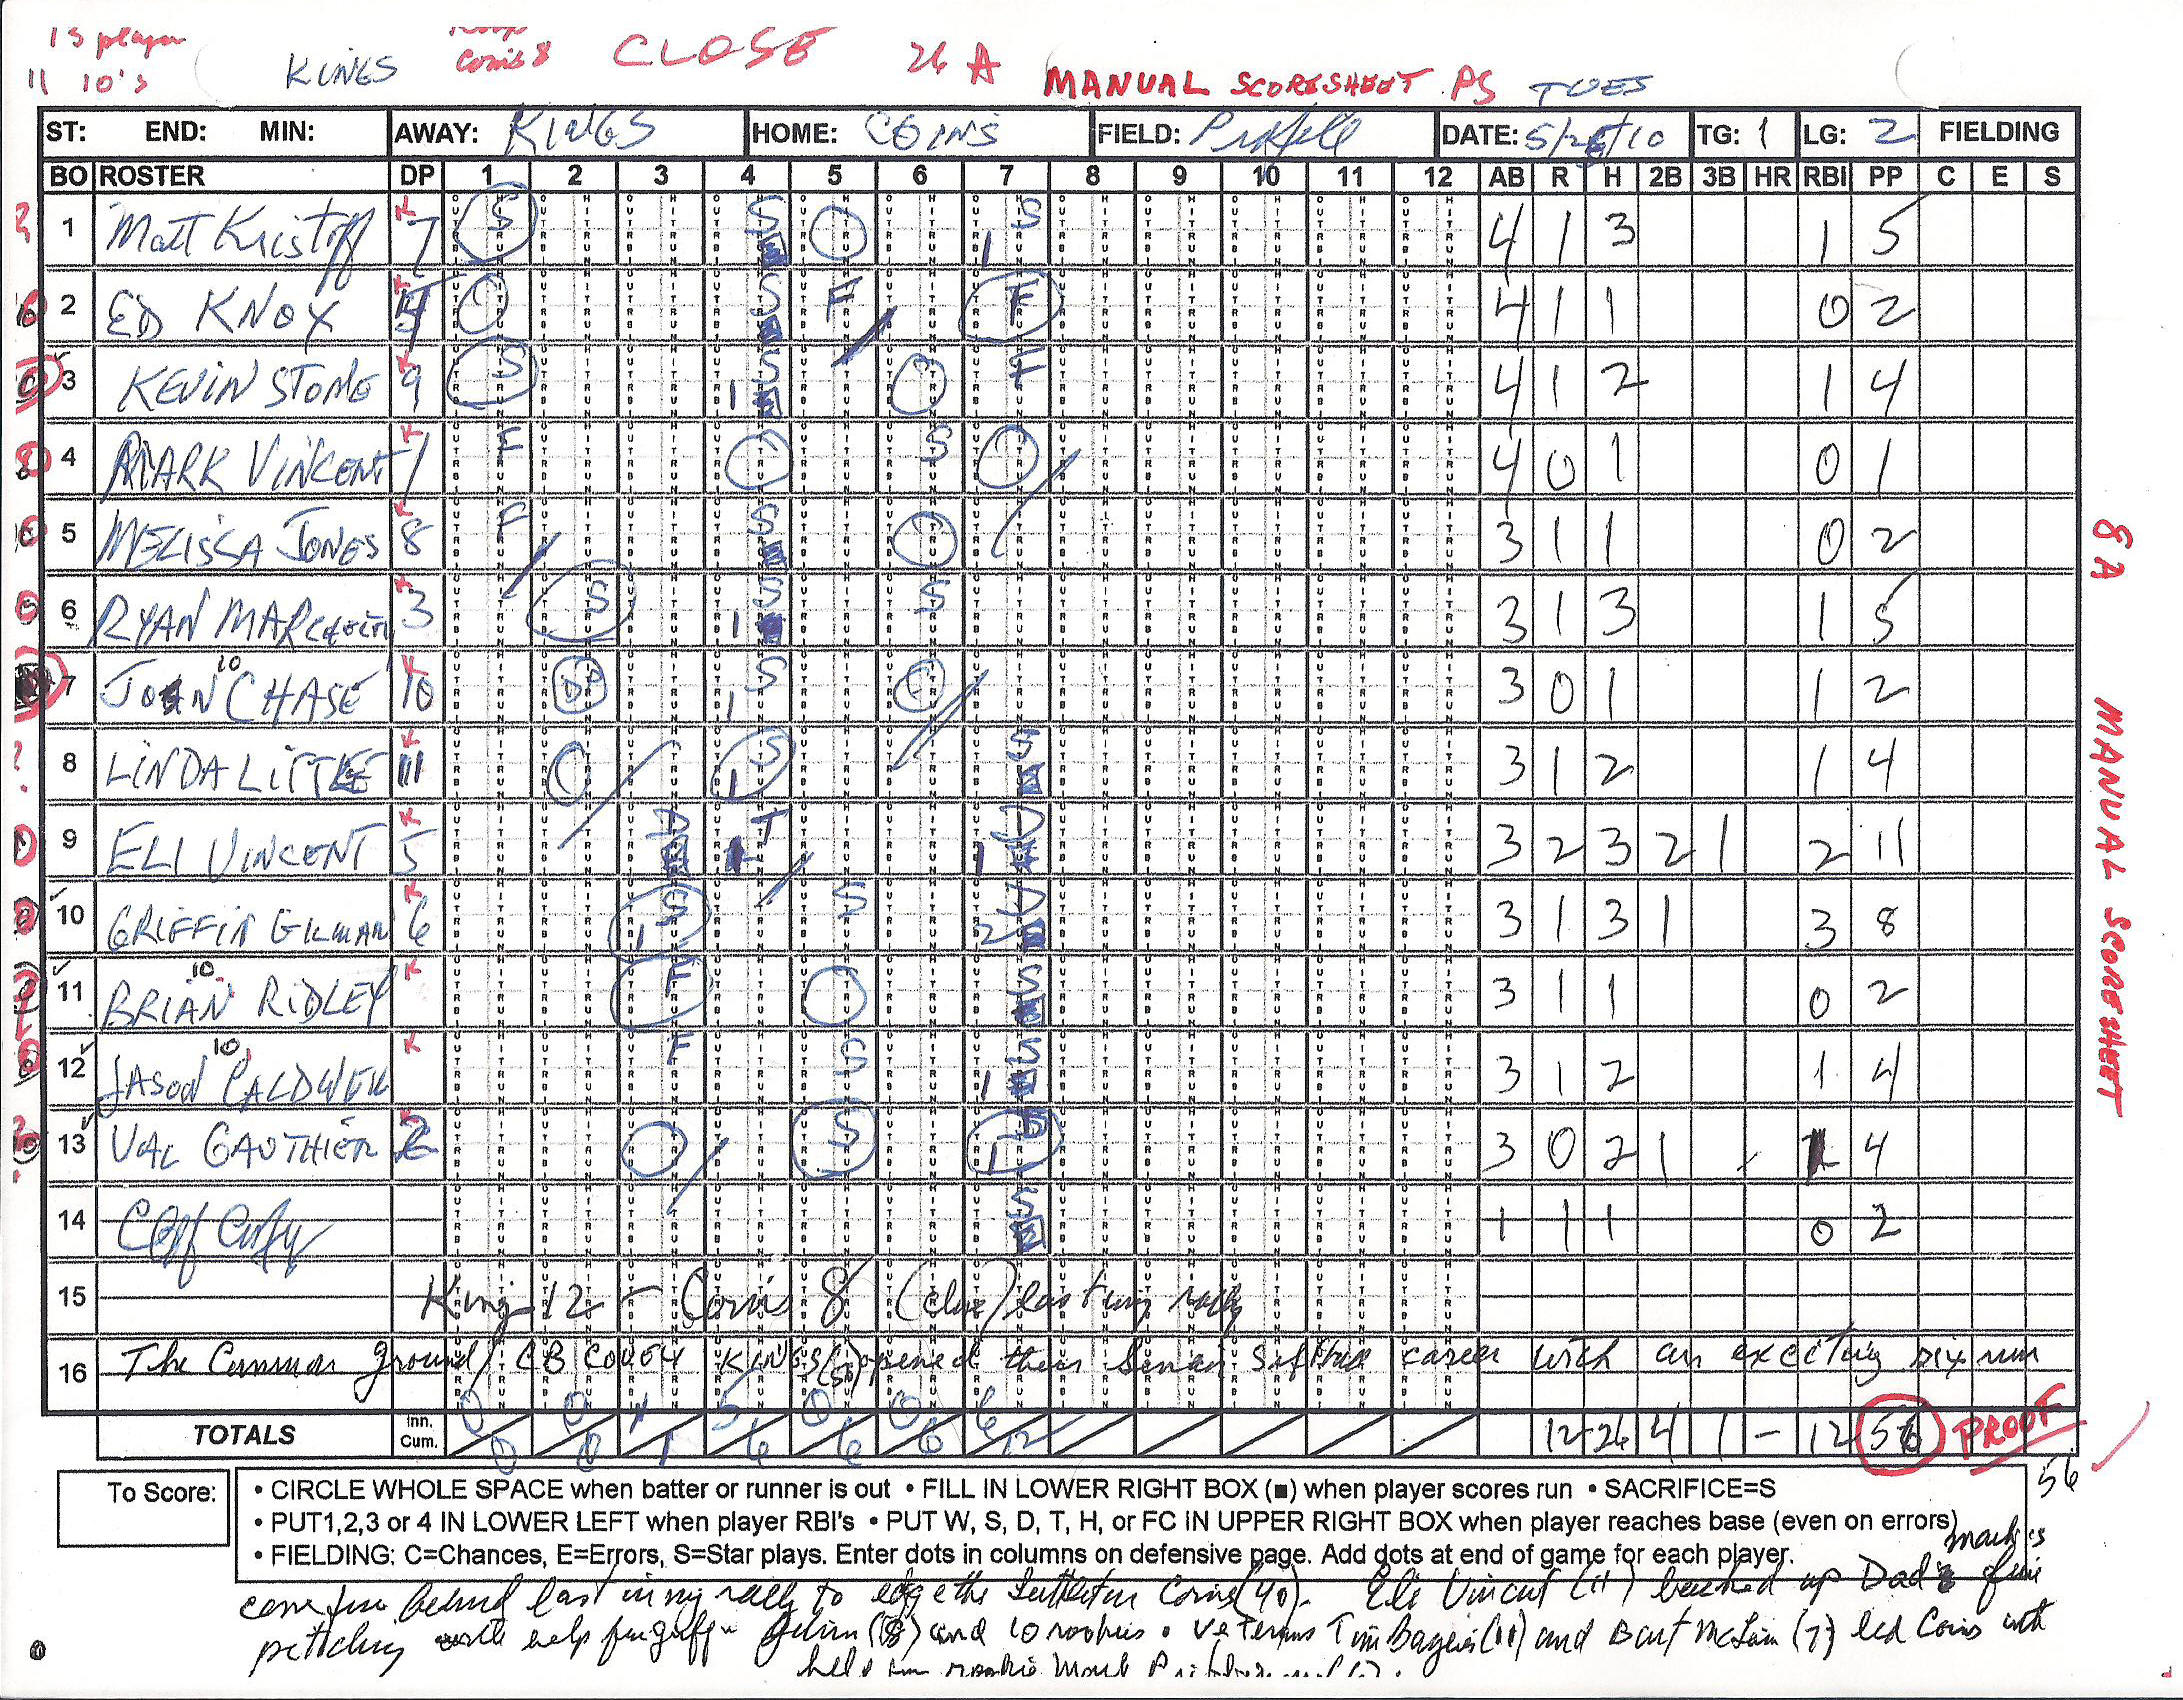 13 player
11 10's
KINGS
Coins 8
CLOSE
26 A
MANUAL SCORESHEET PS TUES
ST: END: MIN: AWAY: KINGS HOME: COINS FIELD: DATE: 5/26/10 TG: 1 LG: 2 FIELDING
BO ROSTER DP 1 2 3 4 5 6 7 8 9 10 11 12 AB R H 2B 3B HR RBI PP C E S
1 Matt Kristoff 7 S S 1 S 4 1 3 1 5
2 ED KNOX S F F 4 1 1 0 2
3 KEVIN STONE 9 S 1 S F 4 1 2 1 4
4 MARK VINCENT 1 F S 4 0 1 0 1
5 MELISSA JONES 8 F S 3 1 1 0 2
6 RYAN 3 S 1 S S 3 1 3 1 5
7 JOHN CHASE 10 10 DP 1 S 3 0 1 1 2
8 LINDA LITTLE 11 1 S S 3 1 2 1 4
9 ELI VINCENT 5 D T 1 D 3 2 3 2 1 2 11
10 GRIFFIN GILMAN 6 1 S S 2 D 3 1 3 1 3 8
11 BRIAN RIDLEY 10 F S 3 1 1 0 2
12 JASON CALDWELL 10 F S 1 S 3 1 2 1 4
13 VAL GAUTHIER S 1 D 3 0 2 1 - 1 4
14 S 1 1 1 0 2
15 Kings 12 - Coins 8 last inning rally
16 The Common ground / CB COUGH KINGS (50) opened their Senior Softball career with an exciting six run
TOTALS Inn. Cum. 0 0 1 5 0 0 6
0 0 1 6 6 6 12 12 26 4 1 - 12 56 PROOF
56
To Score:
• CIRCLE WHOLE SPACE when batter or runner is out • FILL IN LOWER RIGHT BOX (■) when player scores run • SACRIFICE=S
• PUT1,2,3 or 4 IN LOWER LEFT when player RBI's • PUT W, S, D, T, H, or FC IN UPPER RIGHT BOX when player reaches base (even on errors)
• FIELDING: C=Chances, E=Errors, S=Star plays. Enter dots in columns on defensive page. Add dots at end of game for each player.
come from behind last inning rally to edge the Littleton Coins (40). Eli Vincent (11) backed up Dad Mark's fine
pitching with help from (8) and 10 rookies. Veterans Tim (11) and Bart McLain (7) led Coins with
help from rookie Mark
8 A MANUAL SCORESHEET